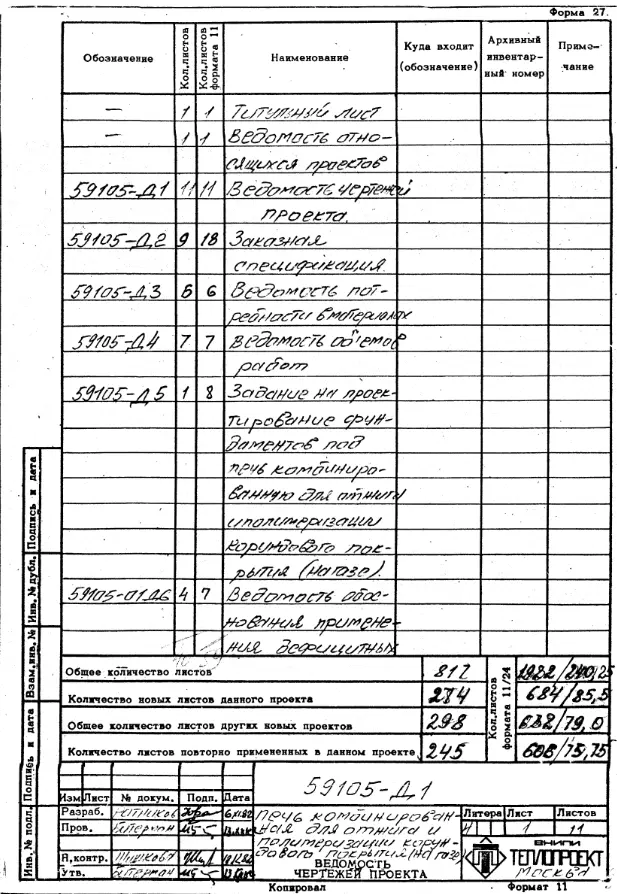 Форма 27.
Обозначение
Кол.листов
Кол.листов формата 11
Наименование
Куда входит (обозначение)
Архивный инвентарный номер
Примечание
— 1 1 Титульный лист
— 1 1 Ведомость отно-
сящихся проектов
59105-Д1 11 11 Ведомость чертежей
проекта.
59105-Д2 9 18 Заказная
спецификация
59105-Д3 6 6 Ведомость пот-
ребности в материалах
59105-Д4 7 7 Ведомость объемов
работ
59105-Д5 1 8 Задание на проек-
тирование фун-
даментов под
печь комбиниро-
ванную для отжига
и полимеризации
корундового пок-
рытия (на газе).
59105-01Д6 4 7 Ведомость обос-
нования примене-
ния дефицитных
Общее количество листов 817
Количество новых листов данного проекта 274
Общее количество листов других новых проектов 298
Количество листов повторно примененных в данном проекте 245
Кол.листов формата 11/24
684/85,5
632/79,0
Инв.№ подл.
Подпись и дата
Взам.инв.№
Инв.№ дубл.
Подпись и дата
59105-Д1
Изм Лист № докум. Подп. Дата
Разраб.
Пров.
Н.контр.
Утв.
Печь комбинирован-
ная для отжига и
полимеризации корун-
дового покрытия (на газе)
ВЕДОМОСТЬ
ЧЕРТЕЖЕЙ ПРОЕКТА
Литера Лист Листов
1 11
ВНИПИ
ТЕПЛОПРОЕКТ
Москва
Копировал
Формат 11